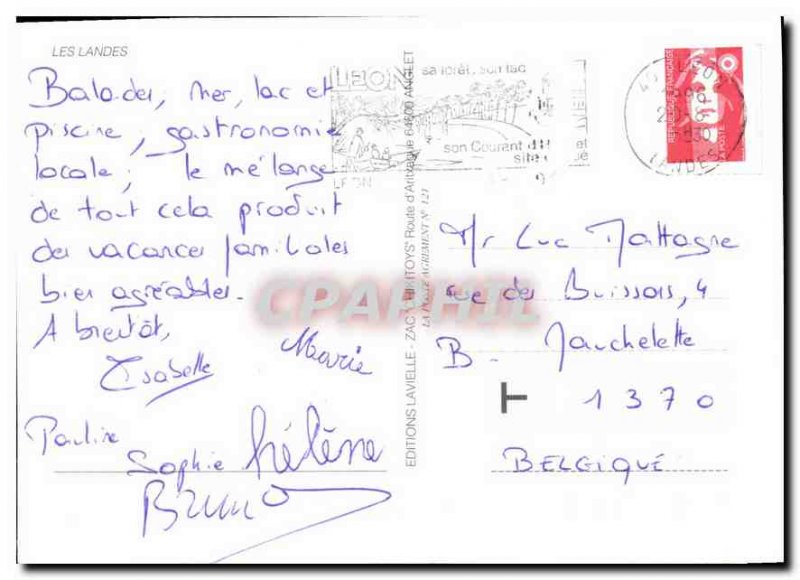 LES LANDES
Balades, mer, lac et
piscine, gastronomie
locale; le mélange
de tout cela produit
des vacances familiales
bien agréables.
A bientôt,
Isabelle
Marie
Pauline
Sophie Hélène
Bruno
EDITIONS LAVIELLE - ZAC Route d'Arbonne 64600 ANGLET
LA POSTE AGREMENT N° 121
LEON sa forêt, son lac
son Courant d'H et
site
LEON
LANDES
REPUBLIQUE FRANCAISE
LA POSTE
Mr Luc Mattagne
rue des Buissons, 4
B - Jauchelette
T 1370
BELGIQUE
CPAPHIL